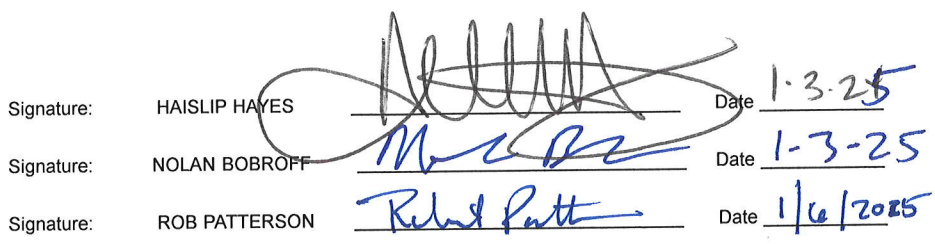 Signature: HAISLIP HAYES Date 1-3-25
Signature: NOLAN BOBROFF Date 1-3-25
Signature: ROB PATTERSON Robert Patt Date 1/6/2025